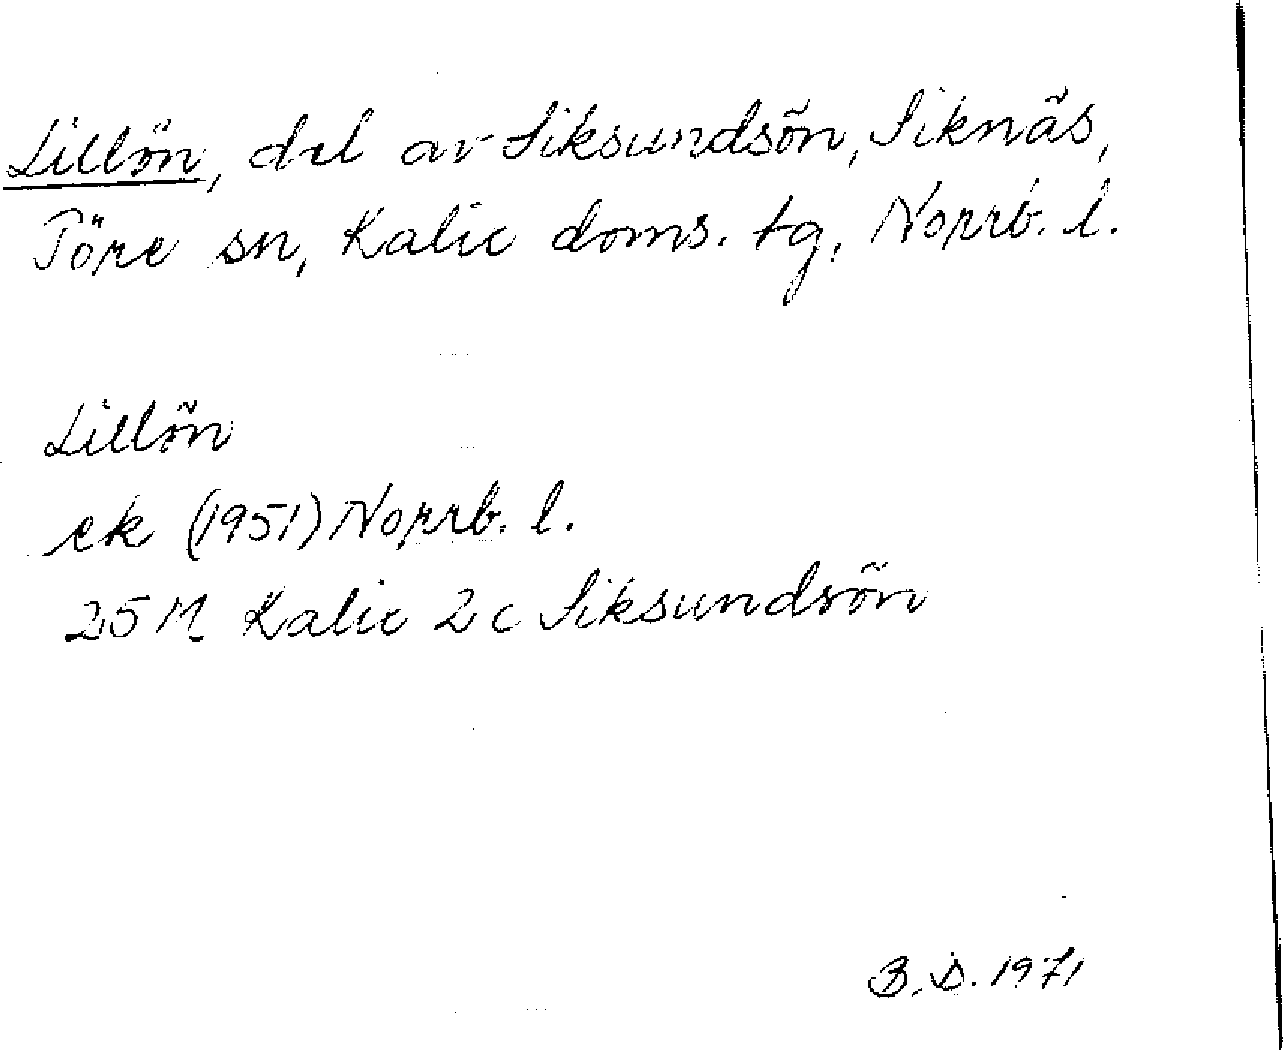 Lillön, del av Siksundsön, Siknäs,
Töre sn, Kalix doms. tg, Norrb. l.
Lillön
ek (1951) Norrb. l.
25 M Kalix 2 c Siksundsön
B. D. 1971